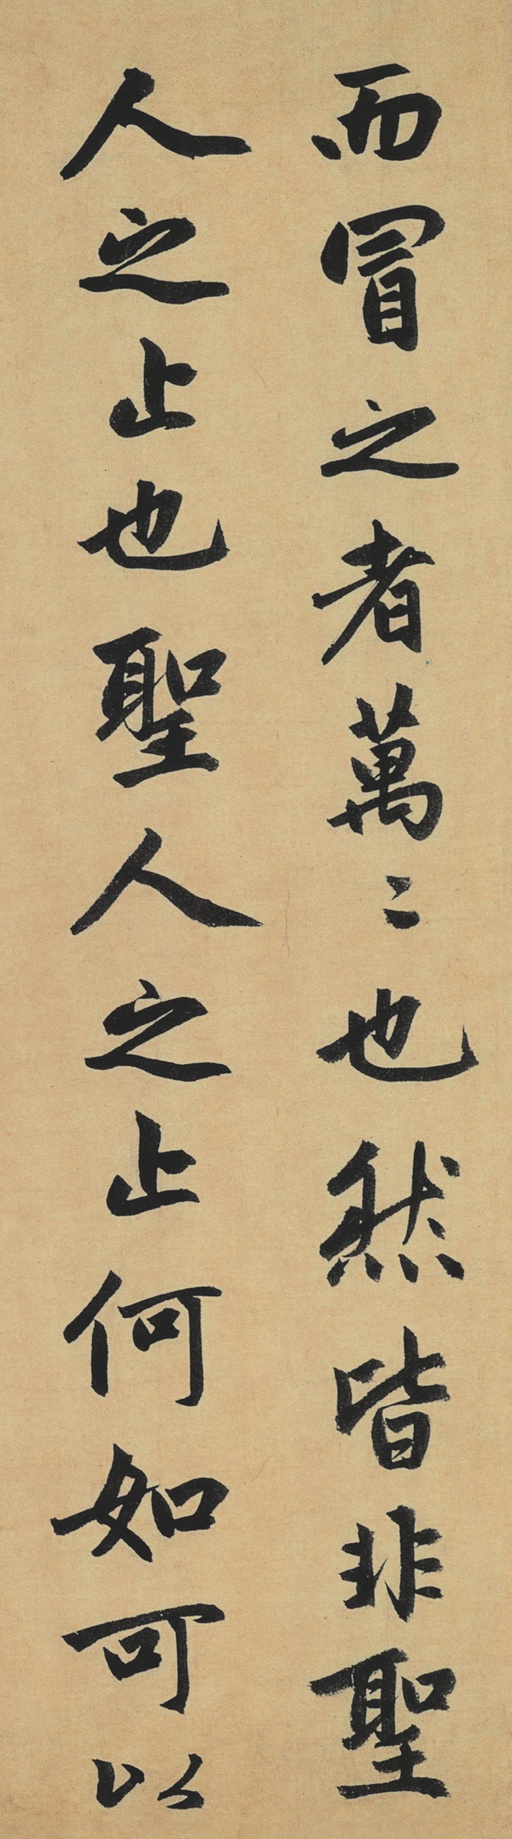 而冒之者萬〻也然皆非聖
人之止也聖人之止何如可以